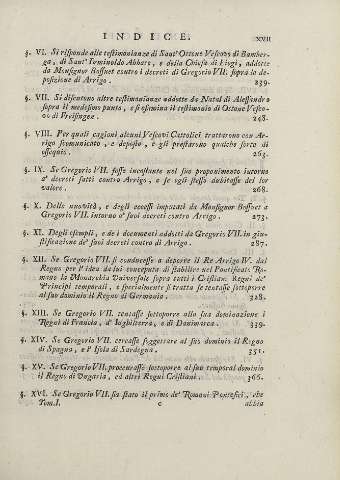 INDICE. XVII
§. VI. Si risponde alle testimonianze di Sant' Ottone Vescovo di Bamber-
ga, di Sant' Gominoldo Abbate, e della Chiesa di Liegi, addotte
da Monsignor Bossuet contro i decreti di Gregorio VII. sopra la de-
posizione di Arrigo. 239.
§. VII. Si discutono altre testimonianze addotte da Natal di Alessandro
sopra il medesimo punto, e si esamina il testimonio di Ottone Vesco-
vo di Frisingen. 248.
§. VIII. Per quali cagioni alcuni Vescovi Cattolici trattarono con Ar-
rigo scomunicato, e deposto, e gli prestarono qualche sorta di
ossequio. 263.
§. IX. Se Gregorio VII. fosse incostante nel suo proponimento intorno
a' decreti fatti contro Arrigo, e se egli stesso dubitasse del lor
valore. 268.
§. X. Delle nuovità, e degli eccessi imputati da Monsignor Bossuet a
Gregorio VII. intorno a' suoi decreti contro Arrigo. 273.
§. XI. Degli esempli, e de i documenti addotti da Gregorio VII. in giu-
stificazione de' suoi decreti contro di Arrigo. 287.
§. XII. Se Gregorio VII. si conducesse a deporre il Re Arrigo IV. dal
Regno per l' idea da lui conceputa di stabilire nel Pontificato Ro-
mano la Monarchia Universale sopra tutti i Cristiani Regni de'
Principi temporali, e specialmente si tratta se tentasse sottoporre
al suo dominio il Regno di Germania. 328.
§. XIII. Se Gregorio VII. tentasse sottoporre alla sua dominazione i
Regni di Francia, d' Inghilterra, e di Danimarca. 339.
§. XIV. Se Gregorio VII. cercasse soggettare al suo dominio il Regno
di Spagna, e l' Isola di Sardegna. 351.
§. XV. Se Gregorio VII. procurasse sottoporre al suo temporal dominio
il Regno di Ungaria, ed altri Regni Cristiani. 366.
§. XVI. Se Gregorio VII. sia stato il primo de' Romani Pontefici, che
Tom. I. c abbia